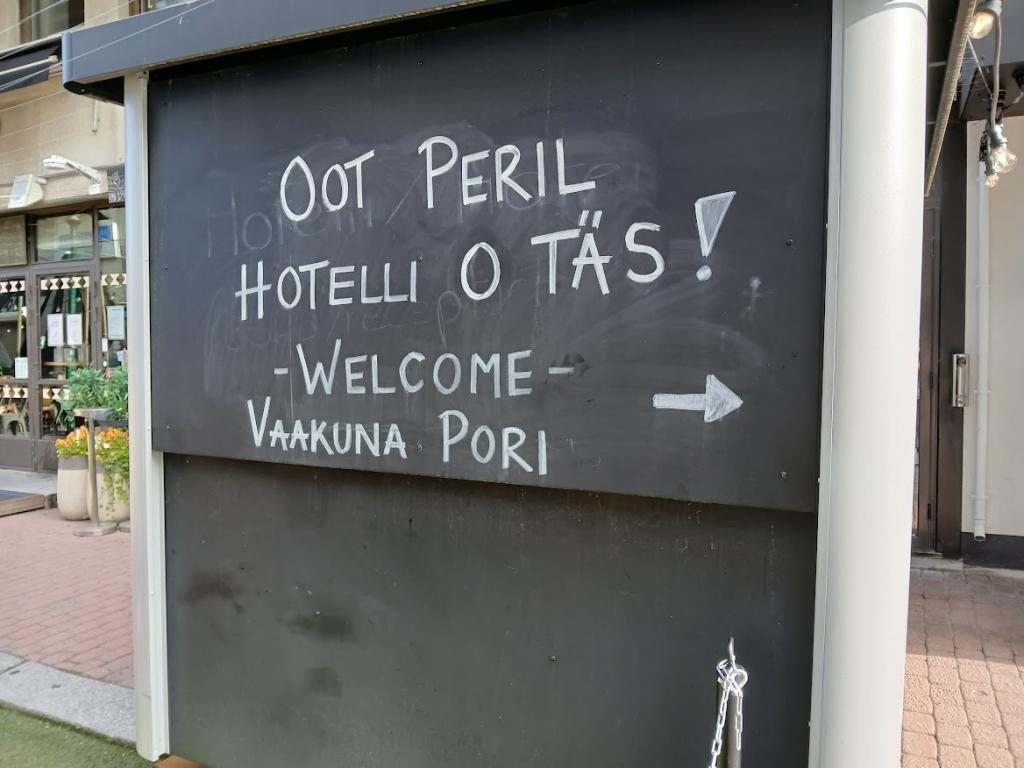 OOT PERIL
HOTELLI O TÄS!
-WELCOME-
VAAKUNA PORI